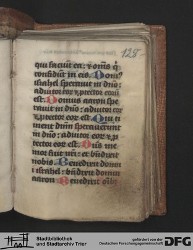 125
qui faciūt ea: et om̄s q̄
confidūt in eis Domꝰ
israhel speravit in dn̄o:
adiutor eoꝝ et ꝓtector eoꝝ
est Domus aaron spe-
ravit in dn̄o: adiutor eoꝝ
et ꝓtector eoꝝ est Qui ti-
ment dn̄m speraverunt
in dn̄o: adiutor eoꝝ et ꝓ-
tector eoꝝ est Dn̄s me-
mor fuit nr̄i: et bn̄dixit
nobis Benedixit domui
israhel: bn̄dixit domui
aaron Benedixit om̄i-
Stadtbibliothek
und Stadtarchiv Trier
gefördert von der
Deutschen Forschungsgemeinschaft
DFG